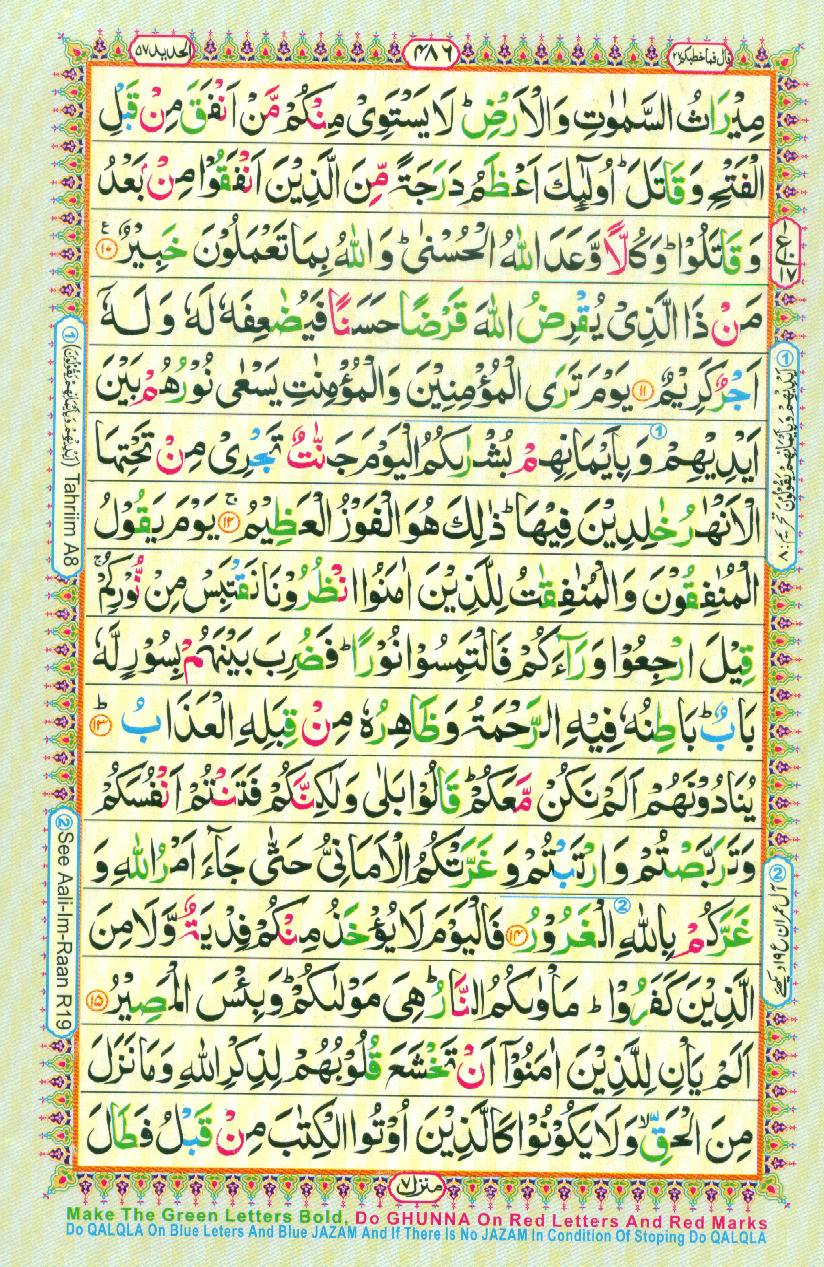 قال فما خطبكم ٢٧
٤٨٦
الحديد ٥٧
مِيْرَاثُ السَّمٰوٰتِ وَالْاَرْضِ ؕ لَا يَسْتَوِىْ مِنْكُمْ مَّنْ اَنْفَقَ مِنْ قَبْلِ
الْفَتْحِ وَ قَاتَلَ ؕ اُولٰٓئِكَ اَعْظَمُ دَرَجَةً مِّنَ الَّذِيْنَ اَنْفَقُوْا مِنْۢ بَعْدُ
وَ قَاتَلُوْا ؕ وَ كُلًّا وَّعَدَ اللّٰهُ الْحُسْنٰى ؕ وَ اللّٰهُ بِمَا تَعْمَلُوْنَ خَبِيْرٌ ۧ ۱۰
مَنْ ذَا الَّذِىْ يُقْرِضُ اللّٰهَ قَرْضًا حَسَنًا فَيُضٰعِفَهٗ لَهٗ وَ لَهٗۤ
اَجْرٌ كَرِيْمٌ ۱۱ يَوْمَ تَرَى الْمُؤْمِنِيْنَ وَالْمُؤْمِنٰتِ يَسْعٰى نُوْرُهُمْ بَيْنَ
اَيْدِيْهِمْ وَ بِاَيْمَانِهِمْ بُشْرٰىكُمُ الْيَوْمَ جَنّٰتٌ تَجْرِىْ مِنْ تَحْتِهَا
الْاَنْهٰرُ خٰلِدِيْنَ فِيْهَا ؕ ذٰلِكَ هُوَ الْفَوْزُ الْعَظِيْمُ ۚ ۱۲ يَوْمَ يَقُوْلُ
الْمُنٰفِقُوْنَ وَ الْمُنٰفِقٰتُ لِلَّذِيْنَ اٰمَنُوا انْظُرُوْنَا نَقْتَبِسْ مِنْ نُّوْرِكُمْ ۚ
قِيْلَ ارْجِعُوْا وَرَآءَكُمْ فَالْتَمِسُوْا نُوْرًا ؕ فَضُرِبَ بَيْنَهُمْ بِسُوْرٍ لَّهٗ
بَابٌ ؕ بَاطِنُهٗ فِيْهِ الرَّحْمَةُ وَ ظَاهِرُهٗ مِنْ قِبَلِهِ الْعَذَابُ ؕ ۱۳
يُنَادُوْنَهُمْ اَلَمْ نَكُنْ مَّعَكُمْ ؕ قَالُوْا بَلٰى وَ لٰكِنَّكُمْ فَتَنْتُمْ اَنْفُسَكُمْ
وَ تَرَبَّصْتُمْ وَ ارْتَبْتُمْ وَ غَرَّتْكُمُ الْاَمَانِىُّ حَتّٰى جَآءَ اَمْرُ اللّٰهِ وَ
غَرَّكُمْ بِاللّٰهِ الْغَرُوْرُ ۱۴ فَالْيَوْمَ لَا يُؤْخَذُ مِنْكُمْ فِدْيَةٌ وَّ لَا مِنَ
الَّذِيْنَ كَفَرُوْا ؕ مَاْوٰىكُمُ النَّارُ ؕ هِىَ مَوْلٰىكُمْ ؕ وَ بِئْسَ الْمَصِيْرُ ۱۵
اَلَمْ يَاْنِ لِلَّذِيْنَ اٰمَنُوْۤا اَنْ تَخْشَعَ قُلُوْبُهُمْ لِذِكْرِ اللّٰهِ وَ مَا نَزَلَ
مِنَ الْحَقِّ ۙ وَ لَا يَكُوْنُوْا كَالَّذِيْنَ اُوْتُوا الْكِتٰبَ مِنْ قَبْلُ فَطَالَ
① (اَيْدِيْهِمْ وَ بِاَيْمَانِهِمْ يَقُوْلُوْنَ) Tahriim A8
② See Aali-Im-Raan R19
① اَيْدِيْهِمْ وَ بِاَيْمَانِهِمْ يَقُوْلُوْنَ تحريم : ٨
② آل عمران ع ١٩ دیکھیے
منزل ٧
Make The Green Letters Bold, Do GHUNNA On Red Letters And Red Marks
Do QALQLA On Blue Leters And Blue JAZAM And If There Is No JAZAM In Condition Of Stoping Do QALQLA